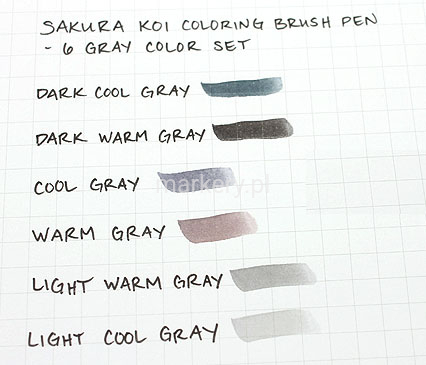 SAKURA KOI COLORING BRUSH PEN
- 6 GRAY COLOR SET
DARK COOL GRAY
DARK WARM GRAY
COOL GRAY
markery.pl
WARM GRAY
LIGHT WARM GRAY
LIGHT COOL GRAY